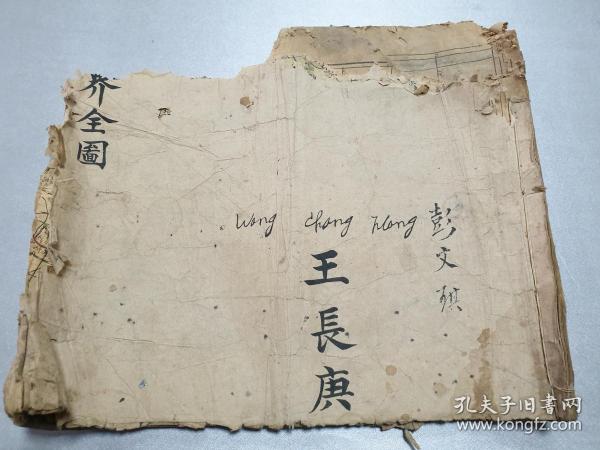 界全圖
Wang Chang
彭文
王長庚
孔夫子旧書网
www.kongfz.com